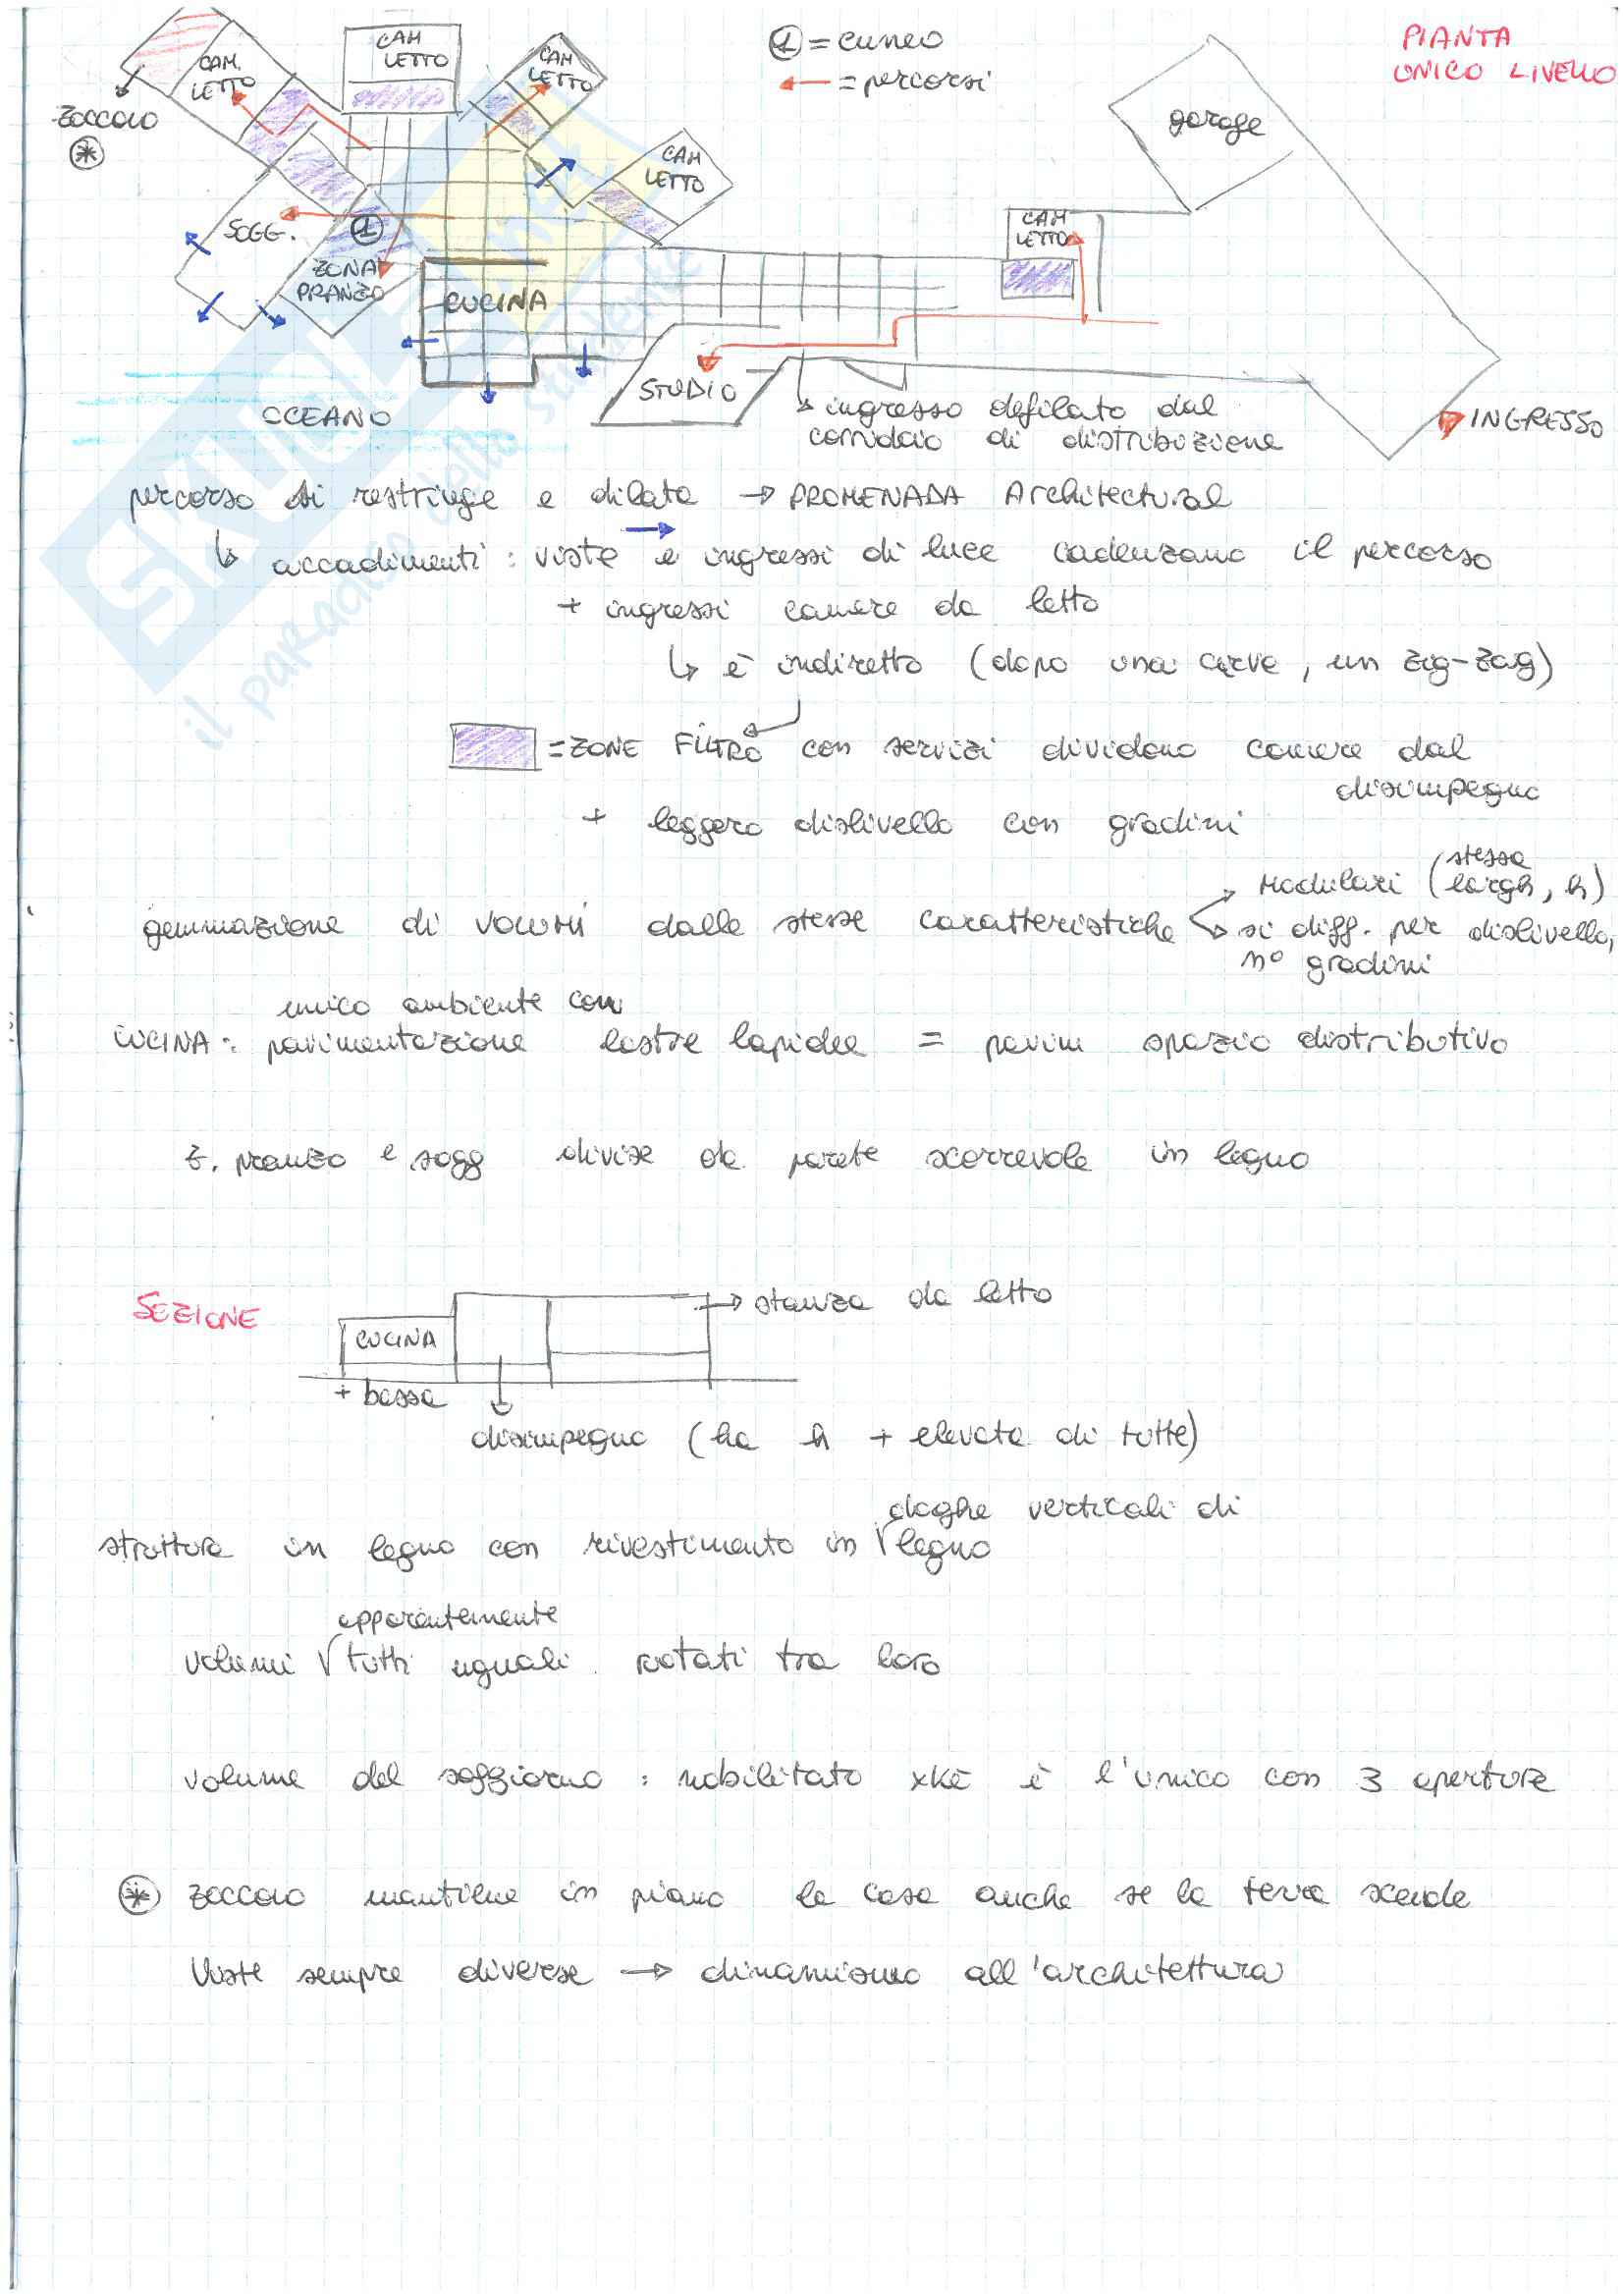 PIANTA
UNICO LIVELLO
① = cuneo
= percorsi
CAM. LETTO
CAM LETTO
CAM LETTO
CAM LETTO
CAM LETTO
garage
ZOCCOLO
*
SOGG.
①
ZONA PRANZO
CUCINA
STUDIO
OCEANO
→ ingresso defilato dal
corridoio di distribuzione
INGRESSO
percorso si restringe e dilata → PROMENADA Architectural
↳ accadimenti : viste e ingressi di luce cadenzano il percorso
+ ingressi camere da letto
↳ è indiretto (dopo una curva, un zig-zag)
= ZONE FILTRO con servizi dividono camere dal
disimpegno
+ leggero dislivello con gradini
gemmazione di volumi dalle stesse caratteristiche → Modulari (stessa largh, h)
→ si diff. per dislivello,
n° gradini
unico ambiente con
CUCINA: pavimentazione lastre lapidee = pavim spazio distributivo
z. pranzo e sogg divise da parete scorrevole in legno
SEZIONE
CUCINA
→ stanza da letto
+ bassa
disimpegno (ha h + elevata di tutte)
doghe verticali di
struttura in legno con rivestimento in √ legno
apparentemente
volumi √ tutti uguali rotati tra loro
volume del soggiorno : nobilitato xkè è l'unico con 3 aperture
* zoccolo mantiene in piano la casa anche se la terra scende
Viste sempre diverse → dinamismo all'architettura
SKUOLA.net
il paradiso dello studente